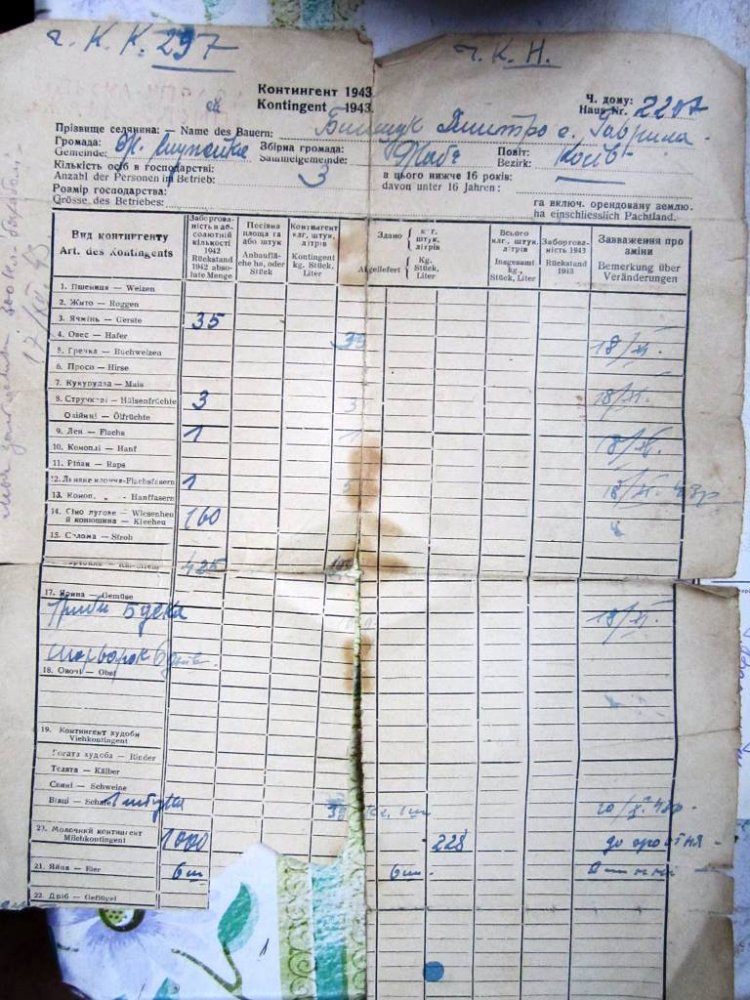 ч. К. К. 297
ч. К. Н.
Контингент 1943
Kontingent 1943.
Ч. дому:
Haus Nr. 2207
Прізвище селянина:
Name des Bauern: Дмитро с. Гаврила
Громада:
Gemeinde:
Збірна громада:
Sammelgemeinde: Жабє
Повіт:
Bezirk: Косів
Кількість осіб в господарстві:
Anzahl der Personen im Betrieb: 3
а цього нижче 16 років:
davon unter 16 Jahren: —
Розмір господарства:
Grösse des Betriebes:
га включ. орендовану землю.
ha einschliesslich Pachtland.
Вид контингенту
Art. des Kontingents
Заборгованість в абсолютній кількості 1942
Rückstand 1942 absolute Menge
Посівна площа га або штук
Anbaufläche ha, oder Stück
Контингент клг. штук, літрів
Kontingent kg. Stück, Liter
Здано { клг. штук, літрів
Abgeliefert { Kg. Stück, Liter
Всього клг. штук, літрів
Insgesamt kg., Stück, Liter
Заборгованість 1943
Rückstand 1943
Завваження про зміни
Bemerkung über Veränderungen
1. Пшениця — Weizen
2. Жито — Roggen
3. Ячмінь — Gerste 35
4. Овес — Hafer 35 18/XI.
5. Гречка — Buchweizen
6. Просо — Hirse
7. Кукурудза — Mais
8. Стручкові — Hülsenfrüchte 3 3 18/XI.
Олійині — Ölfrüchte
9. Лен — Flachs 1 1 18/XI.
10. Коноплі — Hanf
11. Ріпак — Raps
12. Ляняне клоччя-Flachsfasern 1 18/XI. 43р
13. Коноп. „ - Hanffasern
14. Сіно лугове — Wiesenheu
й конюшина — Kleeheu 160
15. Солома — Stroh
425
17. Ярина — Gemüse
Гриби 5 дека 18/XI.
18. Овочі — Obst
19. Контингент худоби
Viehkontingent
Рогата худоба — Rinder
Телята — Kälber
Свині — Schweine
Вівці — Schafe 1 штука
20. Молочний контингент
Milchkontingent 1000 228
21. Яйця — Eier 6 шт 6 шт.
22. Дріб — Geflügel